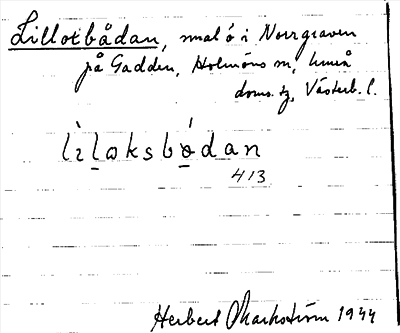 Lillotbådan, smal ö i Norrgraven
på Gadden, Holmöns sn, Umeå
doms. sg, Västerb. l.
lìlɷksbódan
413
Herbert Markström 1944